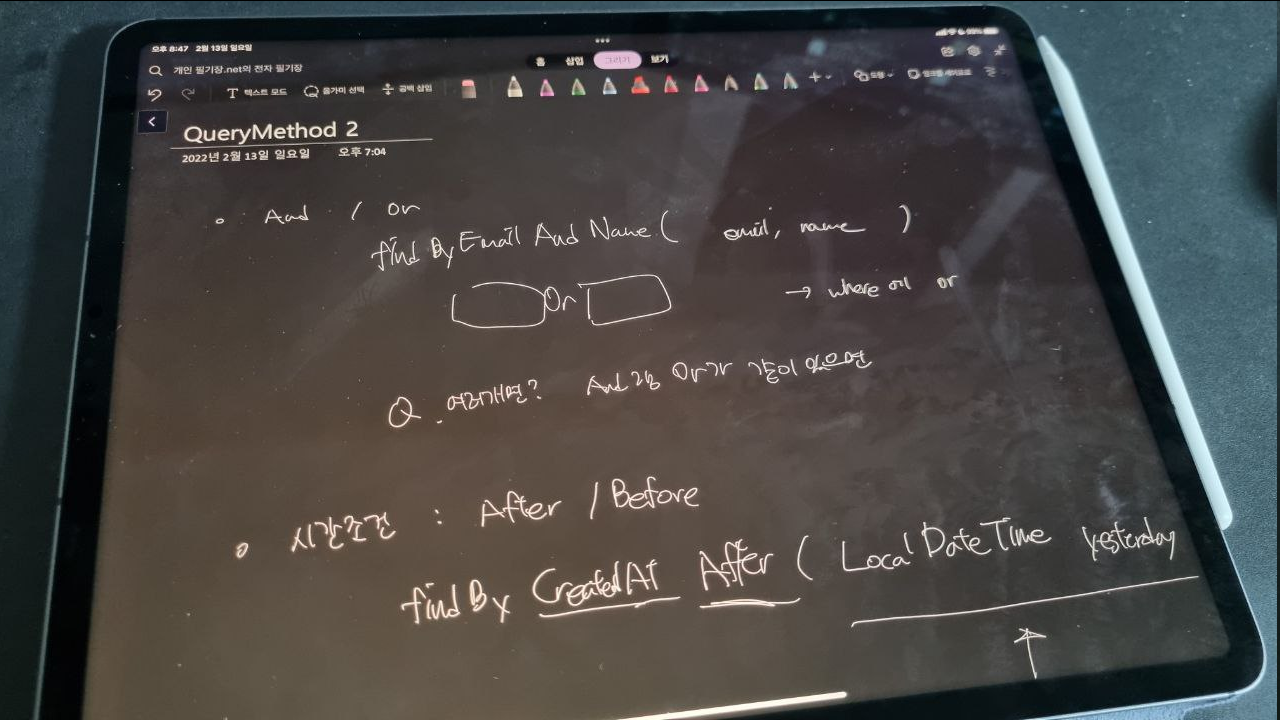 오후 8:47 2월 13일 일요일
개인 필기장.net의 전자 필기장
홈 삽입 그리기 보기
텍스트 모드 올가미 선택 공백 삽입 도형
QueryMethod 2
2022년 2월 13일 일요일 오후 7:04
And / or
find By Email And Name ( email, name )
Or → where에 or
Q. 여러개면? And랑 Or가 같이 있으면
시간조건 : After / Before
find By CreatedAt After ( LocalDateTime yesterday